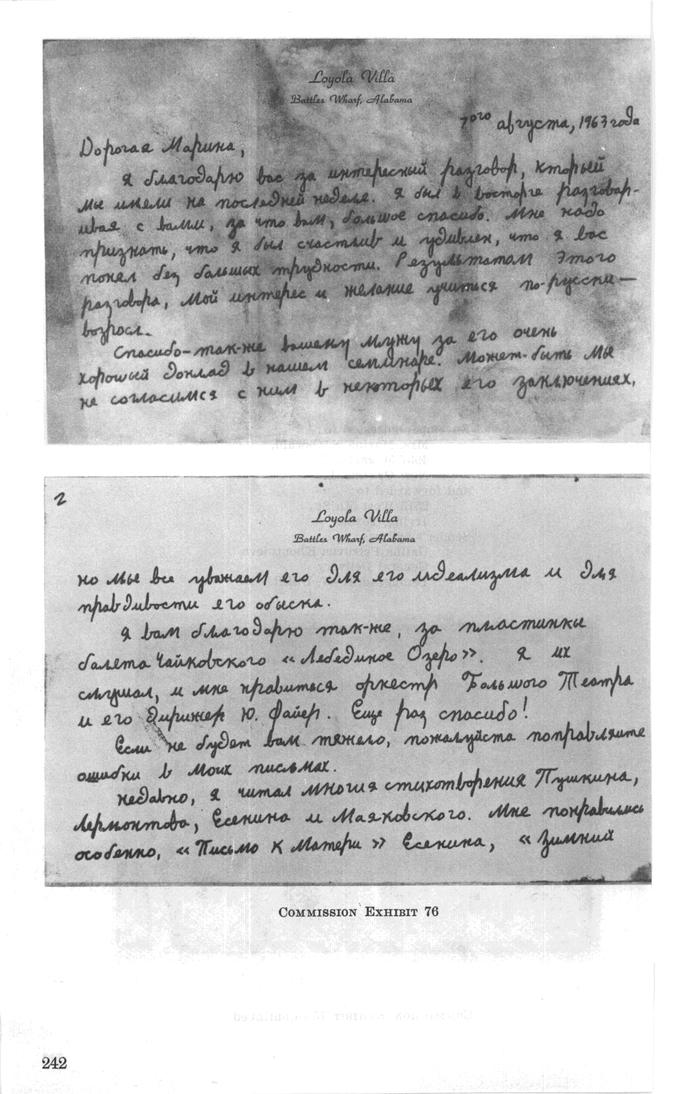 Loyola Villa
Battles Wharf, Alabama
7ого августа, 1963 года
Дорогая Марина,
Я благодарю вас за интересный разговор, кторый
мы имели на последней неделе. Я был в восторге разговар-
ивая с вами, за что вам, большое спасибо. Мне надо
признать, что я был счастлив и удивлен, что я вас
понял без больших трудности. Результатом этого
разговора, мой интерес и желание учиться по-русски—
возросл.
Спасибо-так-же вашему мужу за его очень
хороший доклад в нашем семинаре. Может-быть мы
не согласимся с ним в некоторых его заключениях,
2
Loyola Villa
Battles Wharf, Alabama
но мы все уважаем его для его идеализма и для
правдивости его обыска.
Я вам благодарю так-же, за пластинки
балета Чайковского «Лебединое Озеро». Я их
слушал, и мне нравиться оркестр Большого Театра
и его дирижер Ю. Файер. Еще раз спасибо!
Если не будет вам тяжело, пожалуйста поправляите
ошибки в моих письмах.
Недавно, я читал многия стихотворения Пушкина,
Лермонтова, Есенина и Маяковского. Мне понравились
особенно, «Письмо к Матери» Есенина, «Зимний
COMMISSION EXHIBIT 76
242